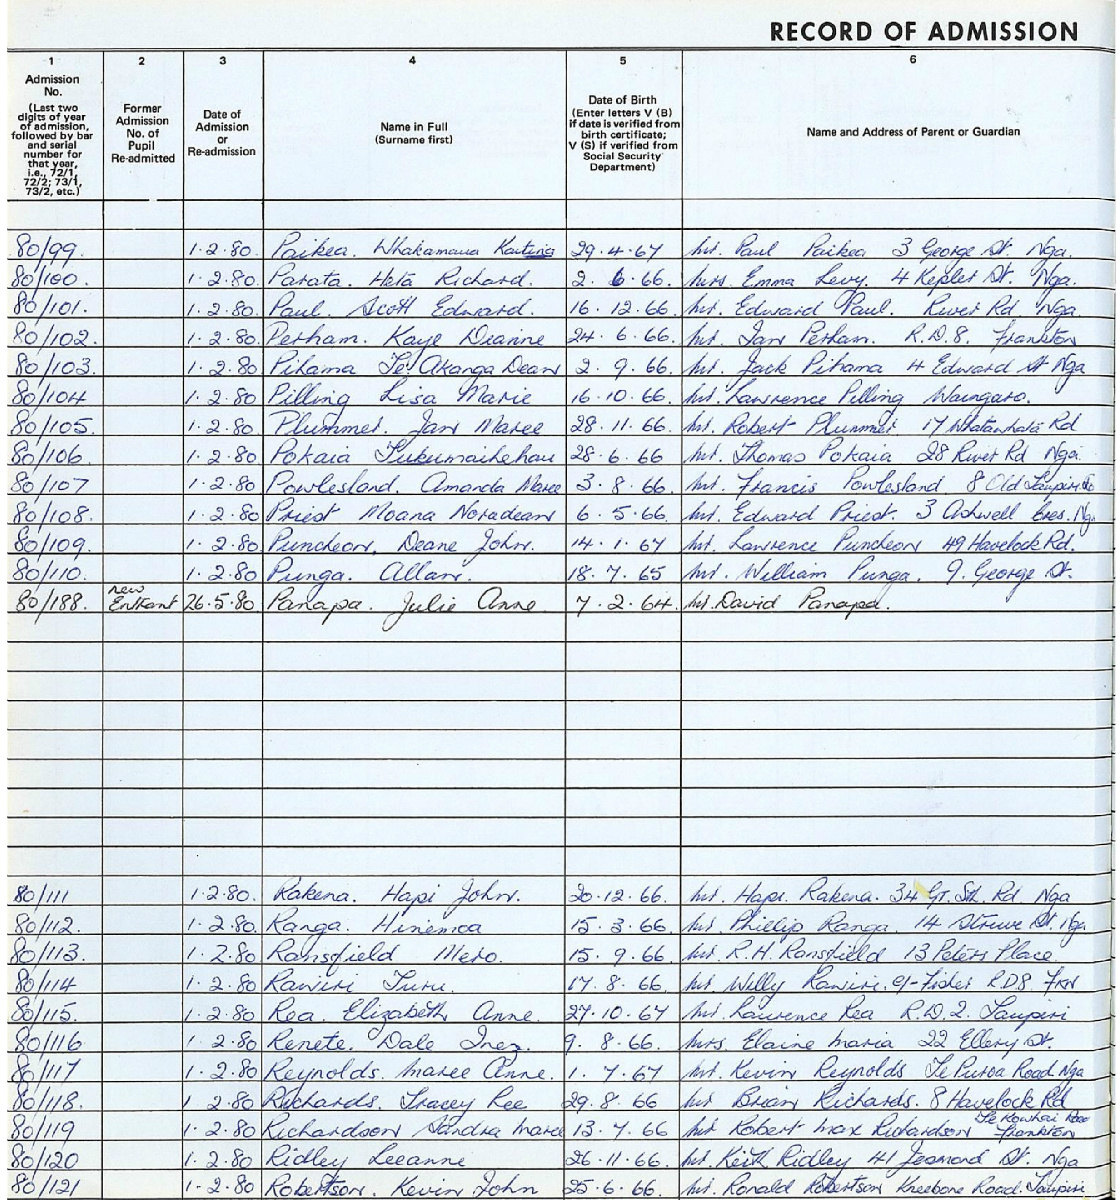 RECORD OF ADMISSION
1 2 3 4 5 6
Admission
No.
(Last two
digits of year
of admission,
followed by bar
and serial
number for
that year,
i.e., 72/1,
72/2; 73/1,
73/2, etc.)
Former
Admission
No. of
Pupil
Re-admitted
Date of
Admission
or
Re-admission
Name in Full
(Surname first)
Date of Birth
(Enter letters V (B)
if date is verified from
birth certificate;
V (S) if verified from
Social Security
Department)
Name and Address of Parent or Guardian
80/99 1·2·80. Paikea. Whakamaua 29·4·67 Mr. Paul Paikea 3 George St. Nga.
80/100 1·2·80. Parata. Heta Richard. 2·6·66. Mrs. Emma Levy. 4 Kepler St. Nga.
80/101. 1·2·80. Paul. Scott Edward. 16·12·66. Mr. Edward Paul. River Rd Nga.
80/102. 1·2·80. Perham. Kaye Dianne 24·6·66. Mr. Ian Perham. R.D.8. Frankton
80/103. 1·2·80. Pihama Te Akanga Dean 2·9·66. Mr. Jack Pihama 4 Edward St Nga
80/104 1·2·80 Pilling Lisa Marie 16·10·66. Mr. Lawrence Pilling Waingaro.
80/105. 1·2·80 Plummer. Jan Maree 28·11·66. Mr. Robert Plummer 17 Rd
80/106. 1·2·80 Pokaia 28·6·66 Mr. Thomas Pokaia 28 River Rd Nga.
80/107 1·2·80 Powlesland. Amanda Maree 3·8·66. Mr. Francis Powlesland 8 Old Taupiri
80/108. 1·2·80 Priest Moana Noradean 6·5·66. Mr. Edward Priest. 3 Ashwell Cres. Nga
80/109. 1·2·80. Puncheon, Deane John. 14·1·67 Mr. Lawrence Puncheon 49 Havelock Rd.
80/110. 1·2·80 Punga. Allan. 18·7·65 Mr. William Punga. 9. George St.
80/188. new Entrant 26·5·80 Panapa. Julie Anne 7·2·64. Mr. David Panapa.
80/111 1·2·80. Rakena. Hapi John. 20·12·66 Mr. Hapi Rakena. 34 Gt. Sth. Rd. Nga
80/112. 1·2·80. Ranga. Hinemoa 15·3·66 Mr. Phillip Ranga. 14 St. Nga.
80/113. 1·2·80 Ransfield Mero. 15·9·66 Mr. R.H. Ransfield 13 Peters Place.
80/114 1·2·80 Rawiri Turu. 17·8·66. Mr. Willy Rawiri. c/- Fisher R.D8
80/115. 1·2·80 Rea. Elizabeth Anne. 27·10·67 Mr. Lawrence Rea R.D.2. Taupiri
80/116 1·2·80 Renete. Dale Inez. 9·8·66. Mrs. Elaine Maria 22 Ellery St.
80/117 1·2·80 Reynolds. Maree Anne. 1·7·67 Mr. Kevin Reynolds Te Puroa Road Nga
80/118. 1 2·80 Richards. Tracey Lee 29·8·66 Mr Brian Richards. 8 Havelock Rd
80/119 1·2·80 Richardson Sandra Maree 13·7·66 Mr Robert Max Richardson Te Kowhai Road Frankton
80/120 1·2·80 Ridley Leeanne 26·11·66. Mr. Keith Ridley 41 Jesmond St. Nga
80/121 1·2·80 Robertson. Kevin John 25·6·66. Mr. Ronald Robertson Kneebone Road Taupiri